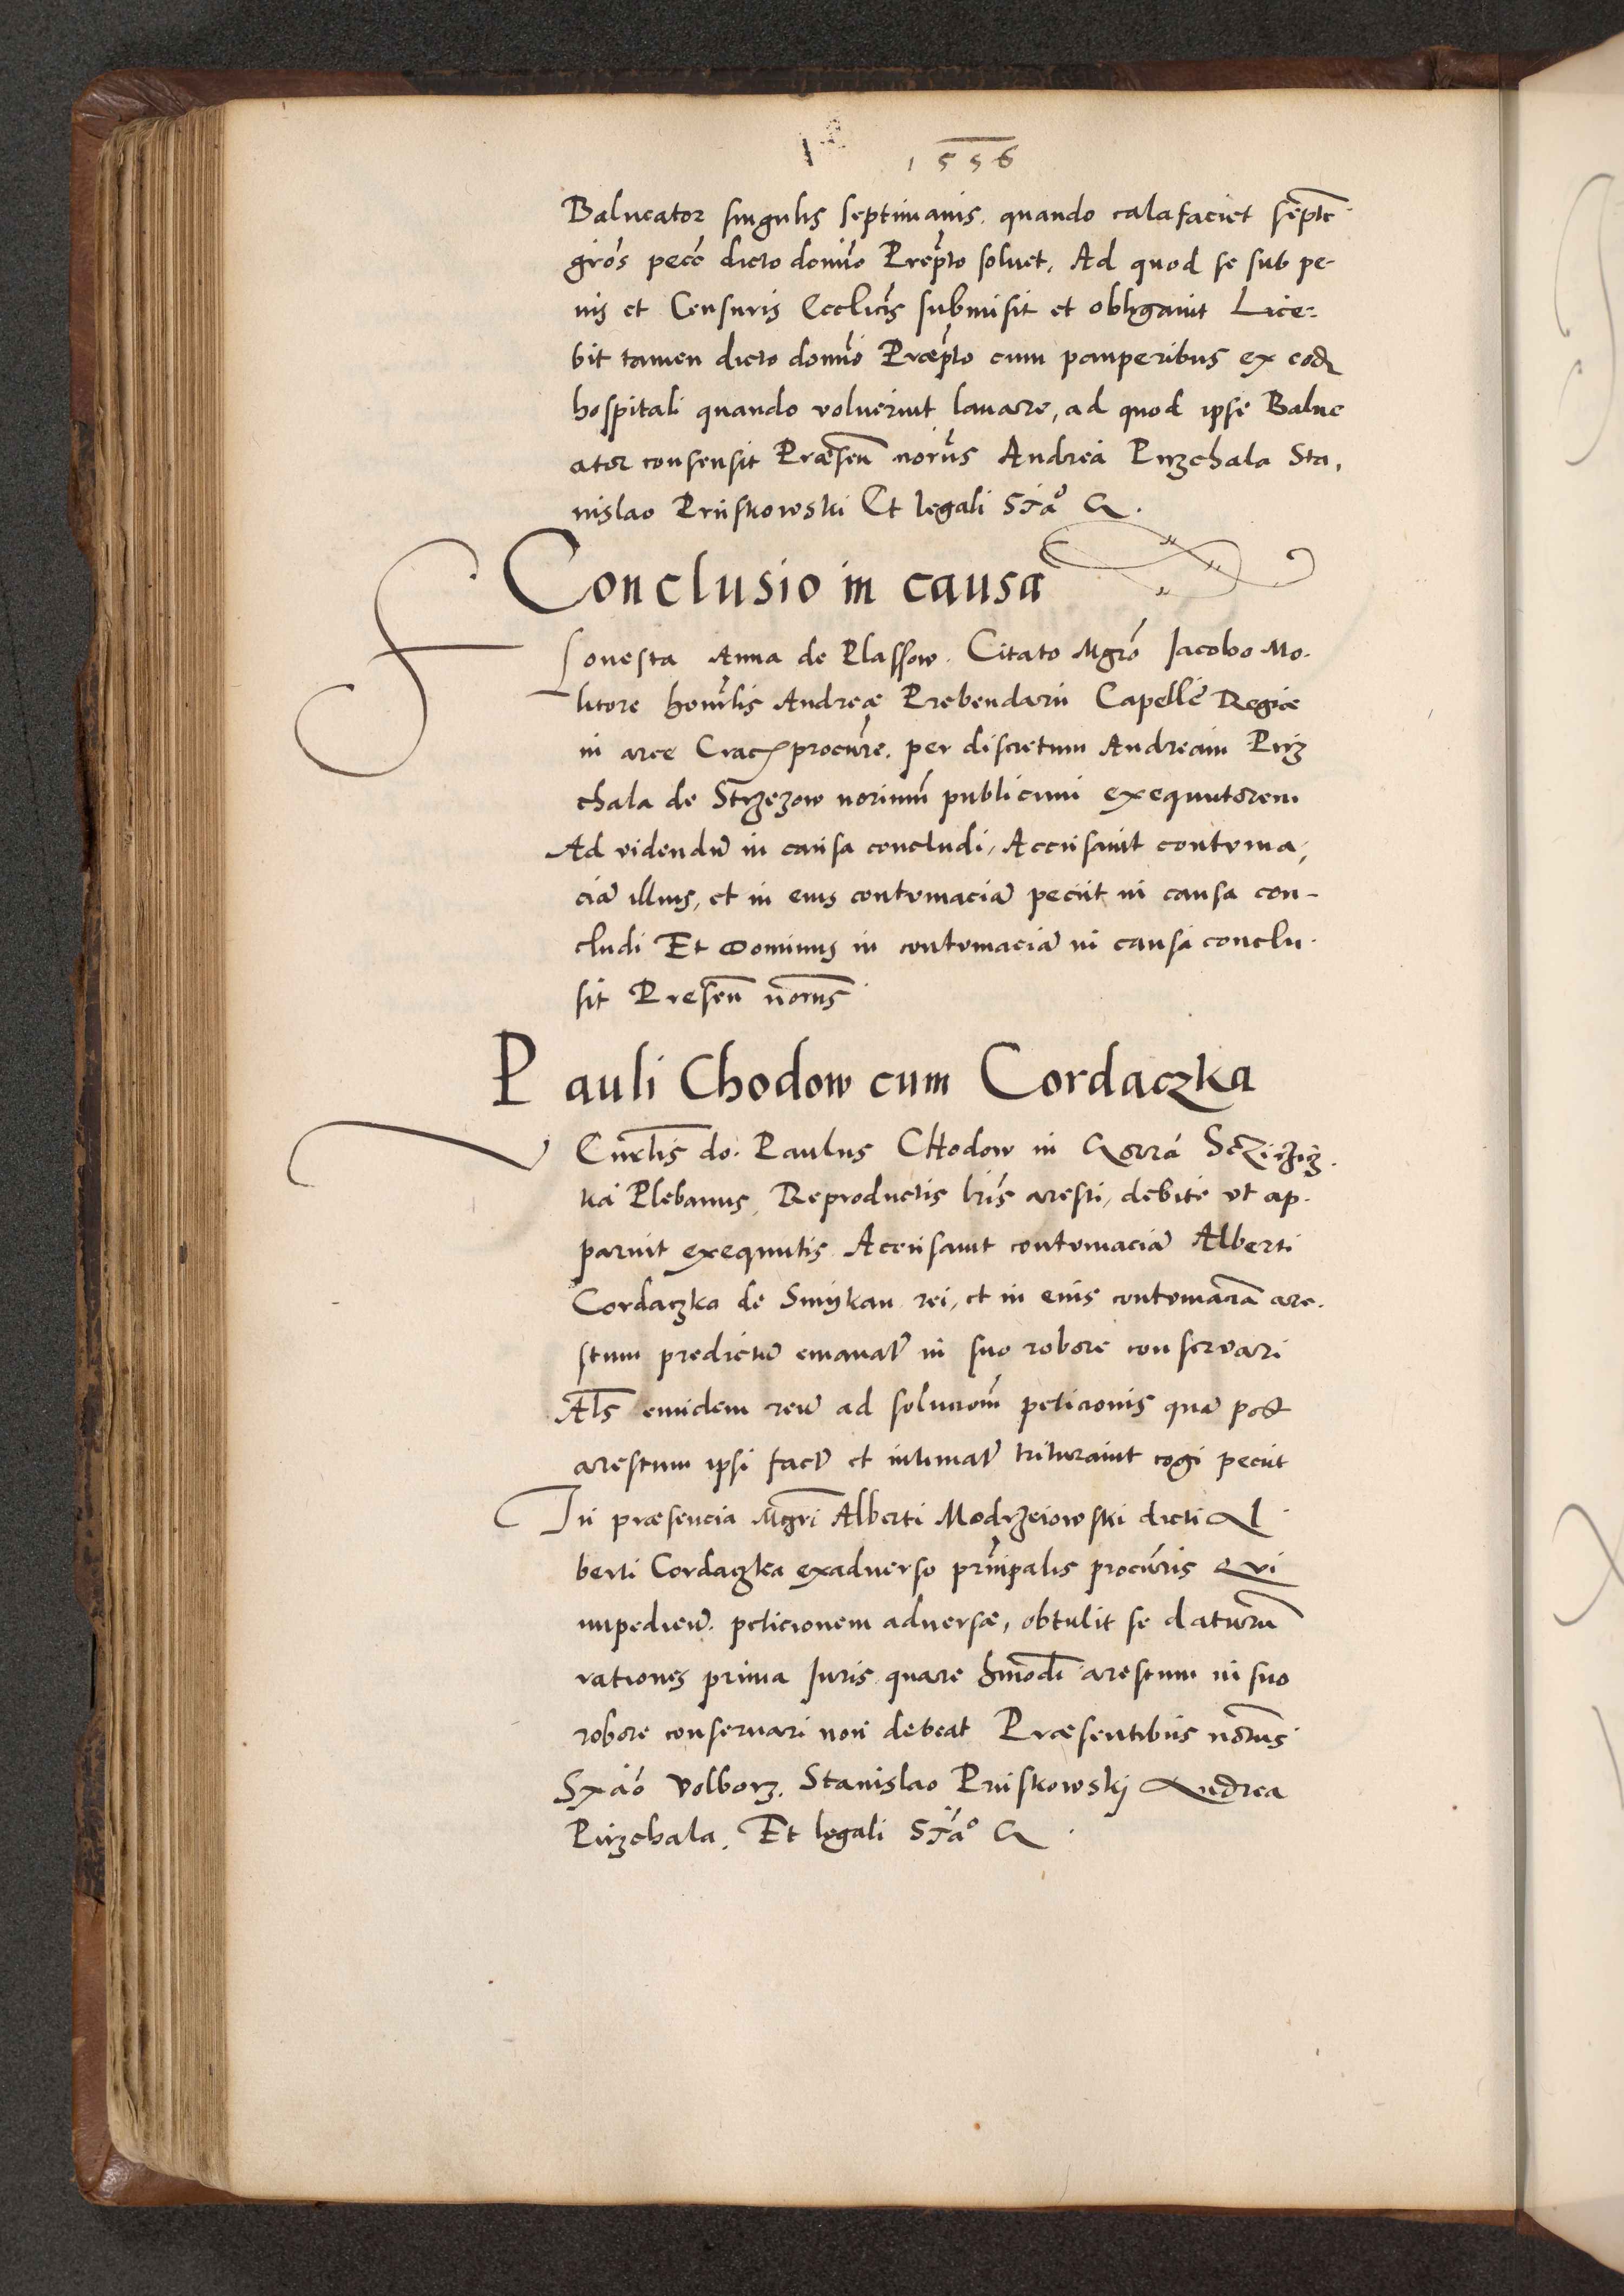 1556
Balneator singulis septimanis. quando calafaciet septē
grōs pecc̄ dicto domīo Prep̄to soluet, Ad quod se sub pe-
nis et Censuris Ecclīcis submisit et obligauit Lice-
bit tamen dicto domīo Præp̄to cum pauperibus ex eodē
hospitali quando voluerint lauare, ad quod ipse Balne
ator consensit Præsen̄ nōrijs Andrea Pirzchala Sta,
nislao Pruskowski Et legali
Conclusio in causa
Honesta Anna de Plassow. Citato Mgr̄o Jacobo Mo-
litore honīlis Andreæ Prebendarii Capelle Regiæ
in arce Crac procūre. per discretum Andream Pirz
chala de Strzezow noriūm publicum exequutorem
Ad videndū in causa concludi, Accusauit contuma,
ciā illius, et in eius contumaciā peciit in causa con-
cludi Et Dominus in contumaciā in causa conclu-
sit Presen̄ nōrijs
Pauli Chodow cum Cordaczka
do. Paulus CHodow in
ka Plebanus, Reproductis lr̄is aresti, debite vt ap-
paruit exequutis Accusauit contumaciā Alberti
Cordaczka de Smykan rei, et in eius contumaciā are-
stum predictū emanatū in suo robore conseruari
Als̄ eundem reū ad solucion̄ peticionis quā post
arestum ipsi factū et intimatū triturauit cogi peciit
In præsencia Mgr̄i Alberti Modrzeiowski dicti Al
berti Cordaczka exaduerso prīncipalis procūris Qui
impedieñ. peticionem aduersæ, obtulit se daturū
rationes prima Juris quare hm̄odi arestum in suo
robore conseruari non debeat Præsentibus nōrijs
Volborz. Stanislao Pruskowskj Andrea
Pirzchala. Et legali